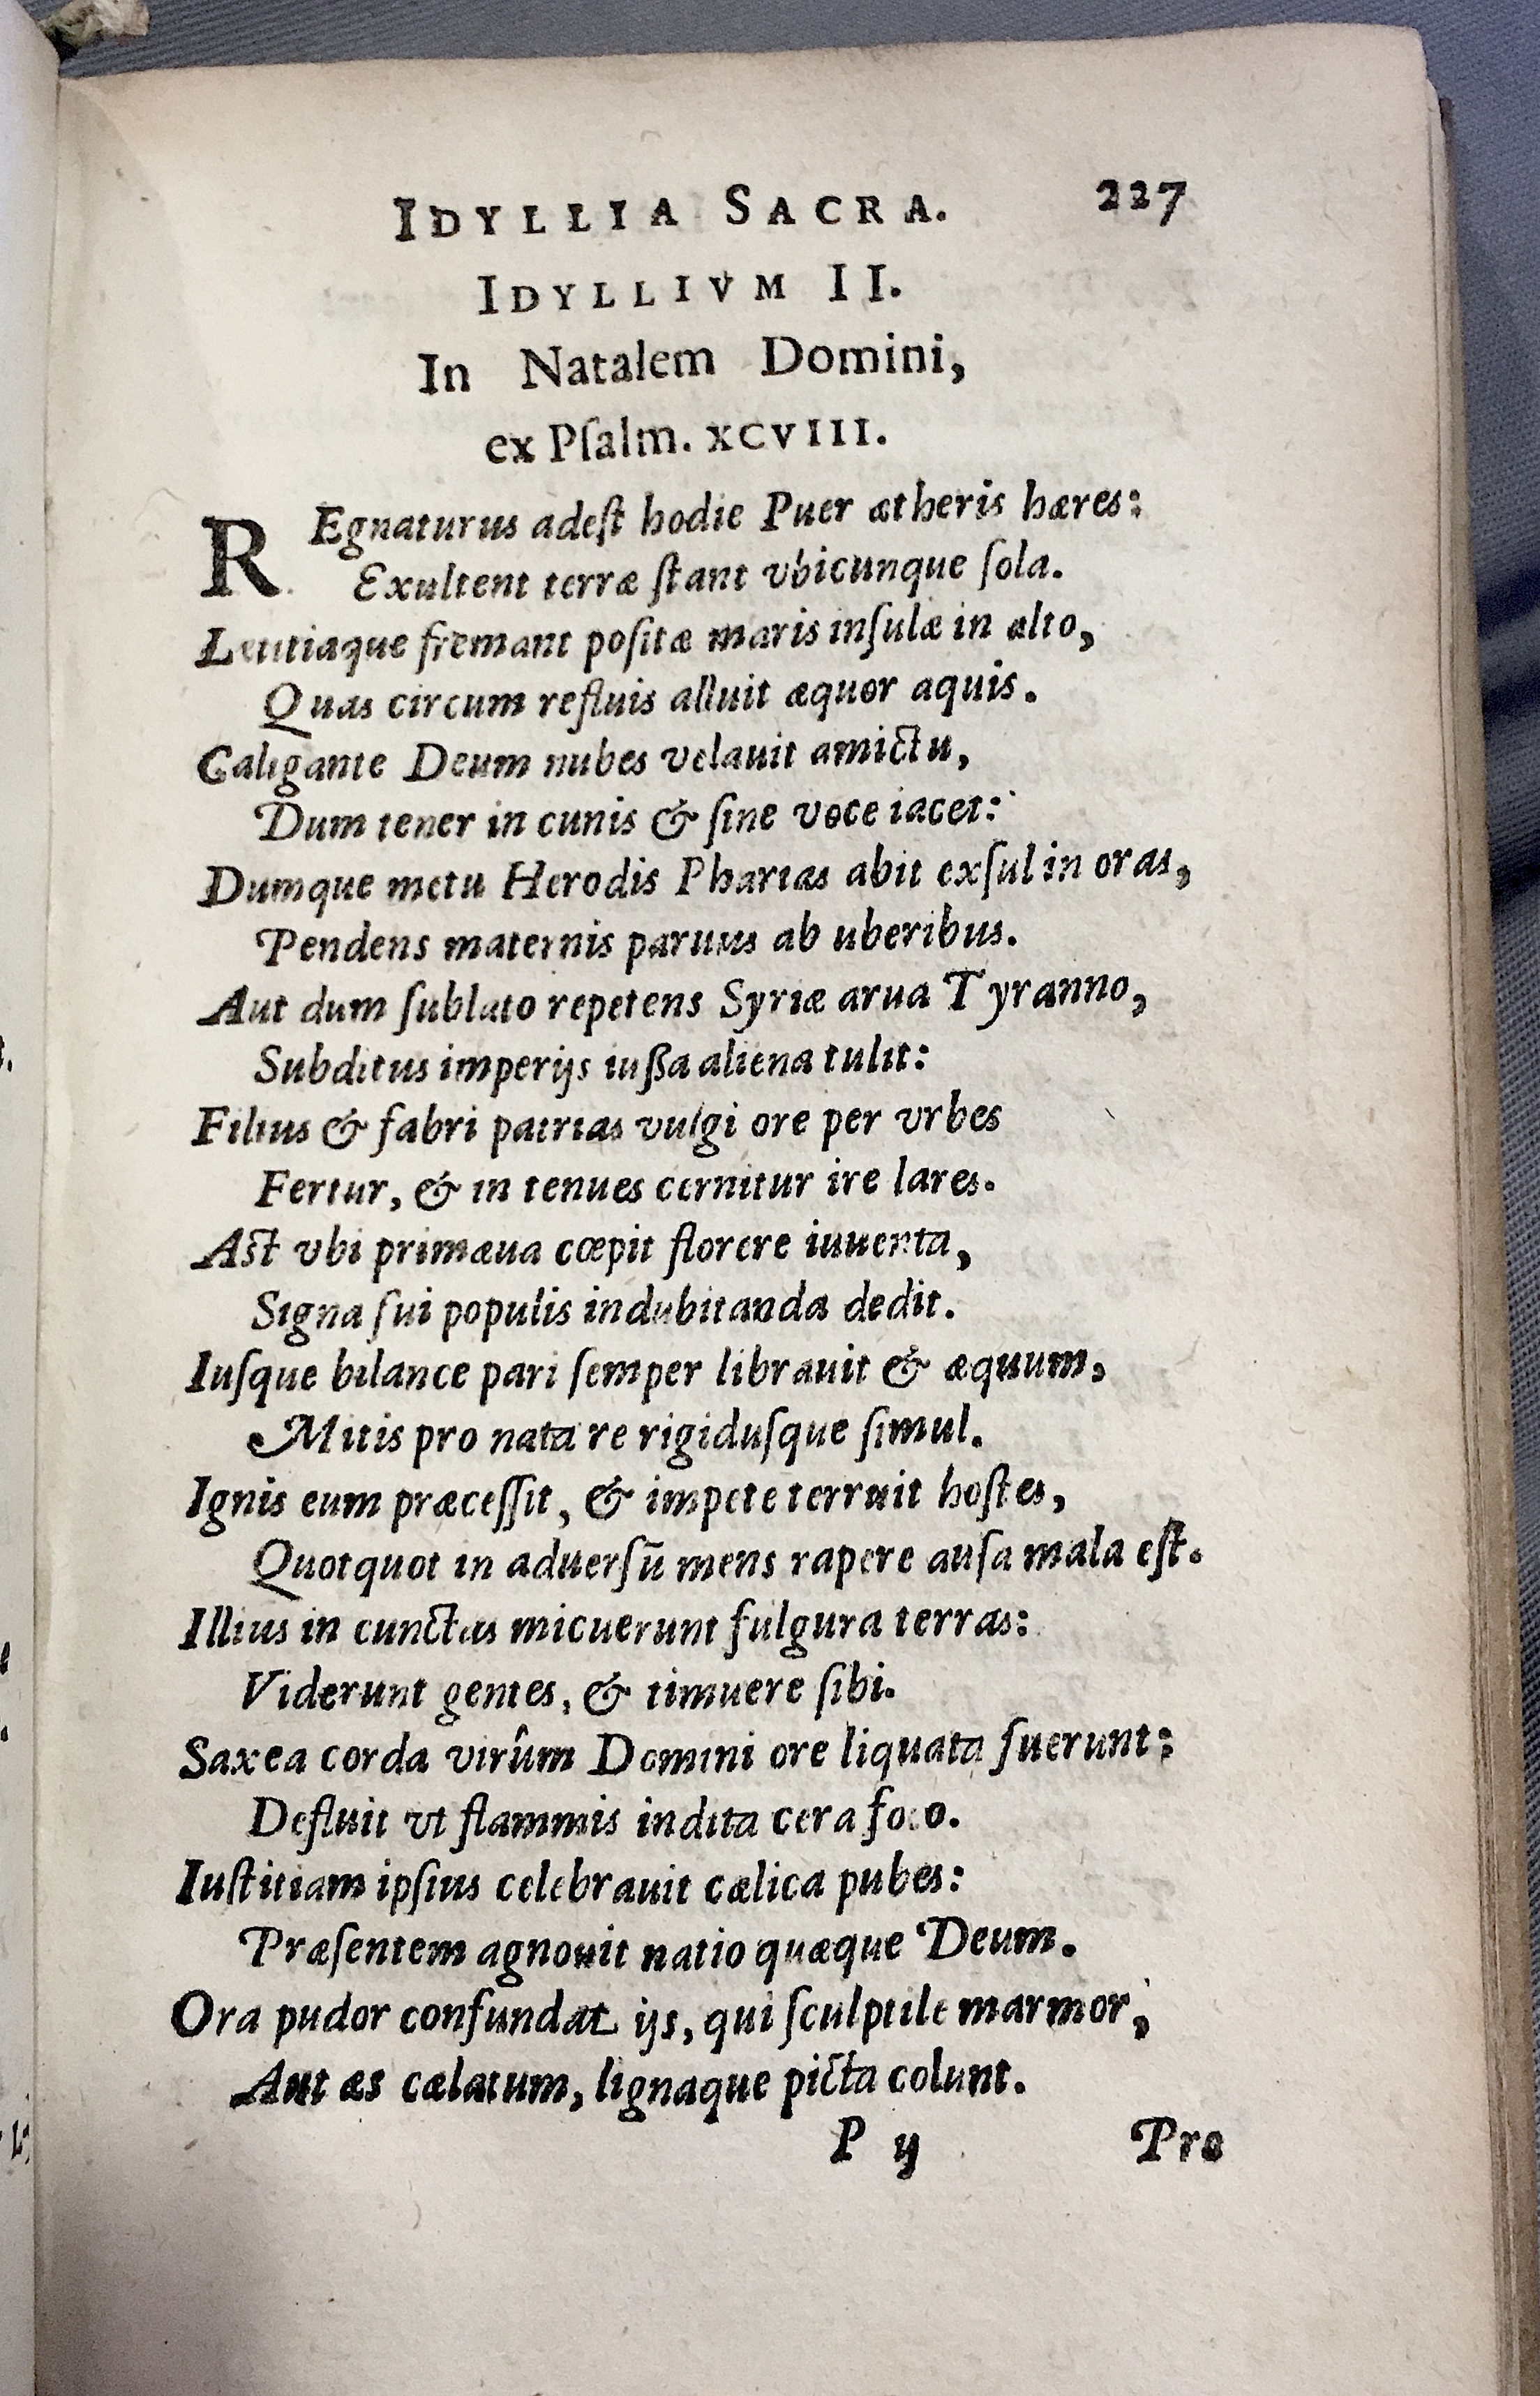 IDYLLIA SACRA. 227
IDYLLIVM II.
In Natalem Domini,
ex Pſalm. XCVIII.
REgnaturus adeſt hodie Puer ætheris hæres:
Exultent terræ ſtant vbicunque ſola.
Letitiaque fremant poſitæ maris inſulæ in alto,
Quas circum refluis alluit æquor aquis.
Caligante Deum nubes velauit amictu,
Dum tener in cunis & ſine voce iacet:
Dumque metu Herodis Pharias abit exſul in oras,
Pendens maternis paruus ab uberibus.
Aut dum ſublato repetens Syriæ arua Tyranno,
Subditus imperijs iußa aliena tulit:
Filius & fabri patrias vulgi ore per vrbes
Fertur, & in tenues cernitur ire lares.
Aſt vbi primæua cœpit florere iuuenta,
Signa ſui populis indubitanda dedit.
Iuſque bilance pari ſemper librauit & æquum,
Mitis pro nata re rigiduſque ſimul.
Ignis eum præceſſit, & impete terruit hoſtes,
Quotquot in aduerſū mens rapere auſa mala eſt.
Illius in cunctas micuerunt fulgura terras:
Viderunt gentes, & timuere ſibi.
Saxea corda virûm Domini ore liquata fuerunt:
Defluit vt flammis indita cera foco.
Iuſtitiam ipſius celebrauit cælica pubes:
Præſentem agnouit natio quæque Deum.
Ora pudor confundat ijs, qui ſculptile marmor,
Aut æs cælatum, lignaque picta colunt.
P ij Pro